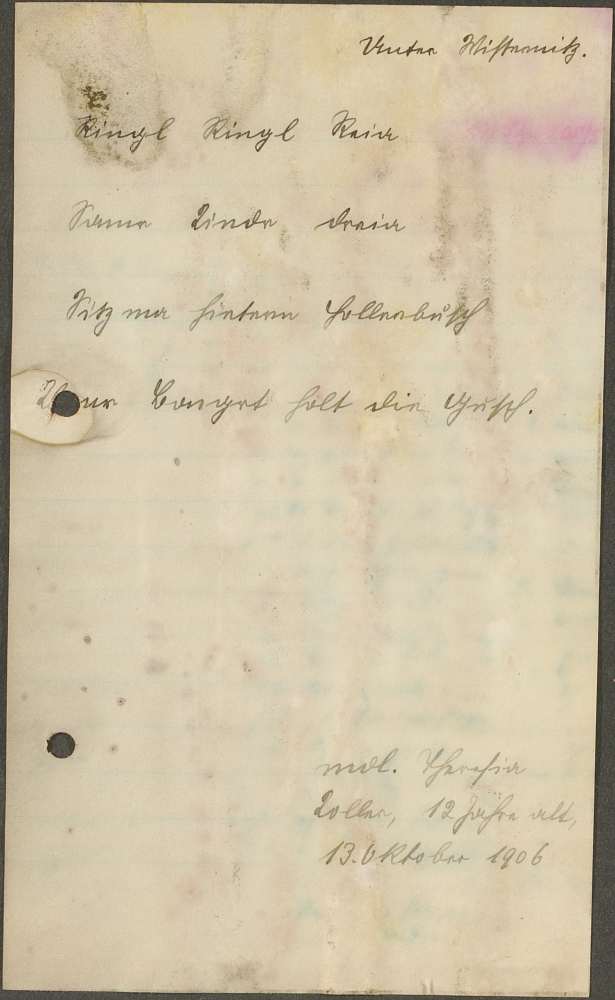 Unter Wisternitz.
Ringl Ringl Reia
Same Kinda dreia
Sitz ma hintern Hollerbusch
holt die Gusch.
mdl. Theresia
Zoller, 12 Jahre alt,
13. Oktober 1906